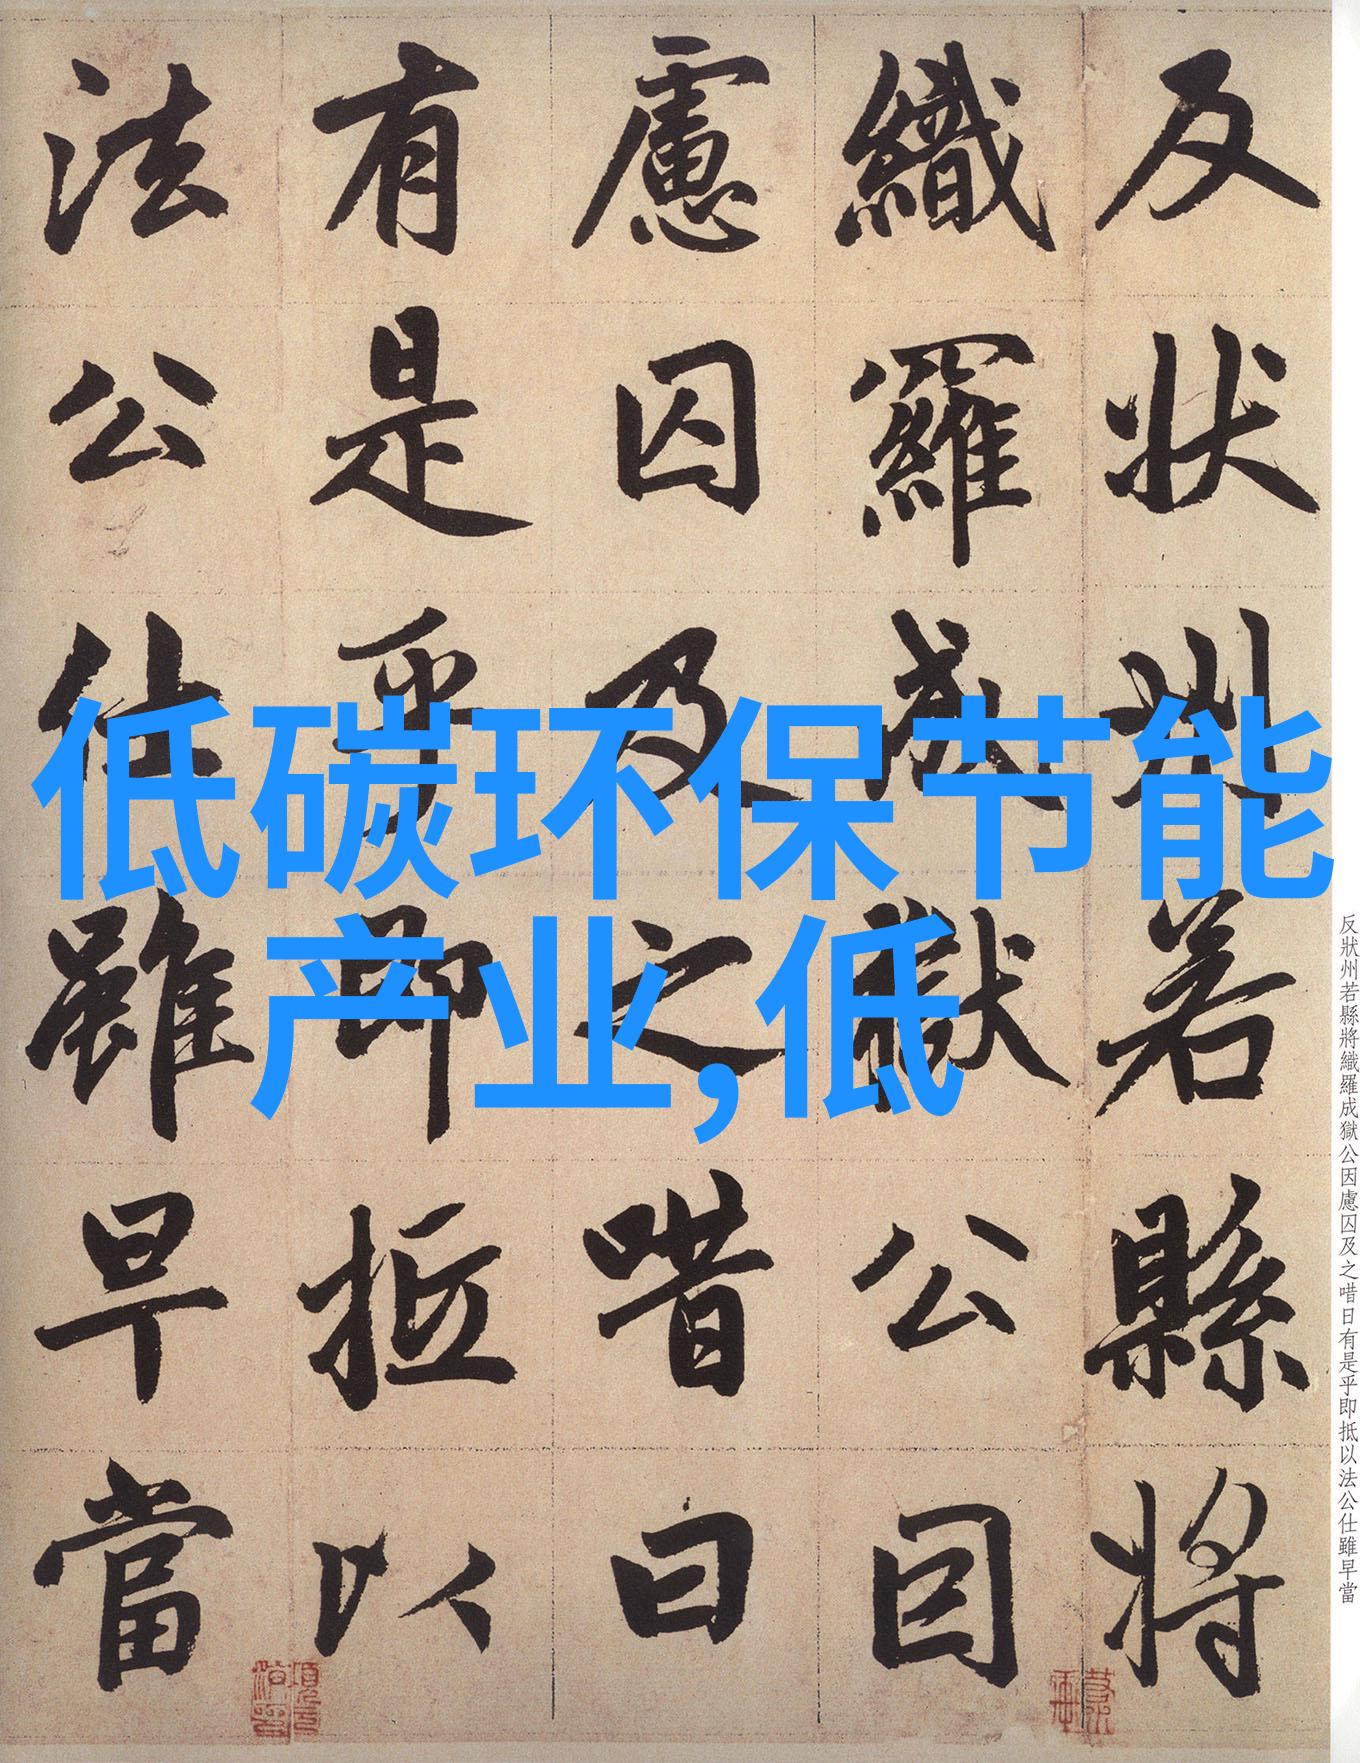 反狀州若縣將
織羅成獄公因
慮囚及之唶曰
有是乎即抵以
法公仕雖早當
低碳环保节能
产业,低
反狀州若縣將織羅成獄公因慮囚及之唶日有是乎即抵以法公仕雖早當